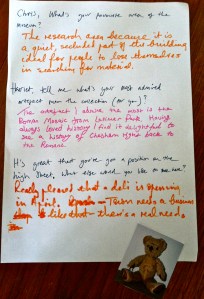 Chris, What's your favourite area of the
museum?
The research area because it is
a quiet, secluded part of the building
ideal for people to lose themselves
in searching for material.
Harriet, tell me what's your most admired
artefact from the collection (for you)?
The artefact I adore the most is the
Roman Mosaic from Latimer Park. Having
always loved history I find it delightful to
see a history of Chesham right back to
the Romans.
It's great that you've got a position on the
high street, what else would you like to see here?
Really pleased that a deli is opening
in April. Town need a business
like that there's a real need